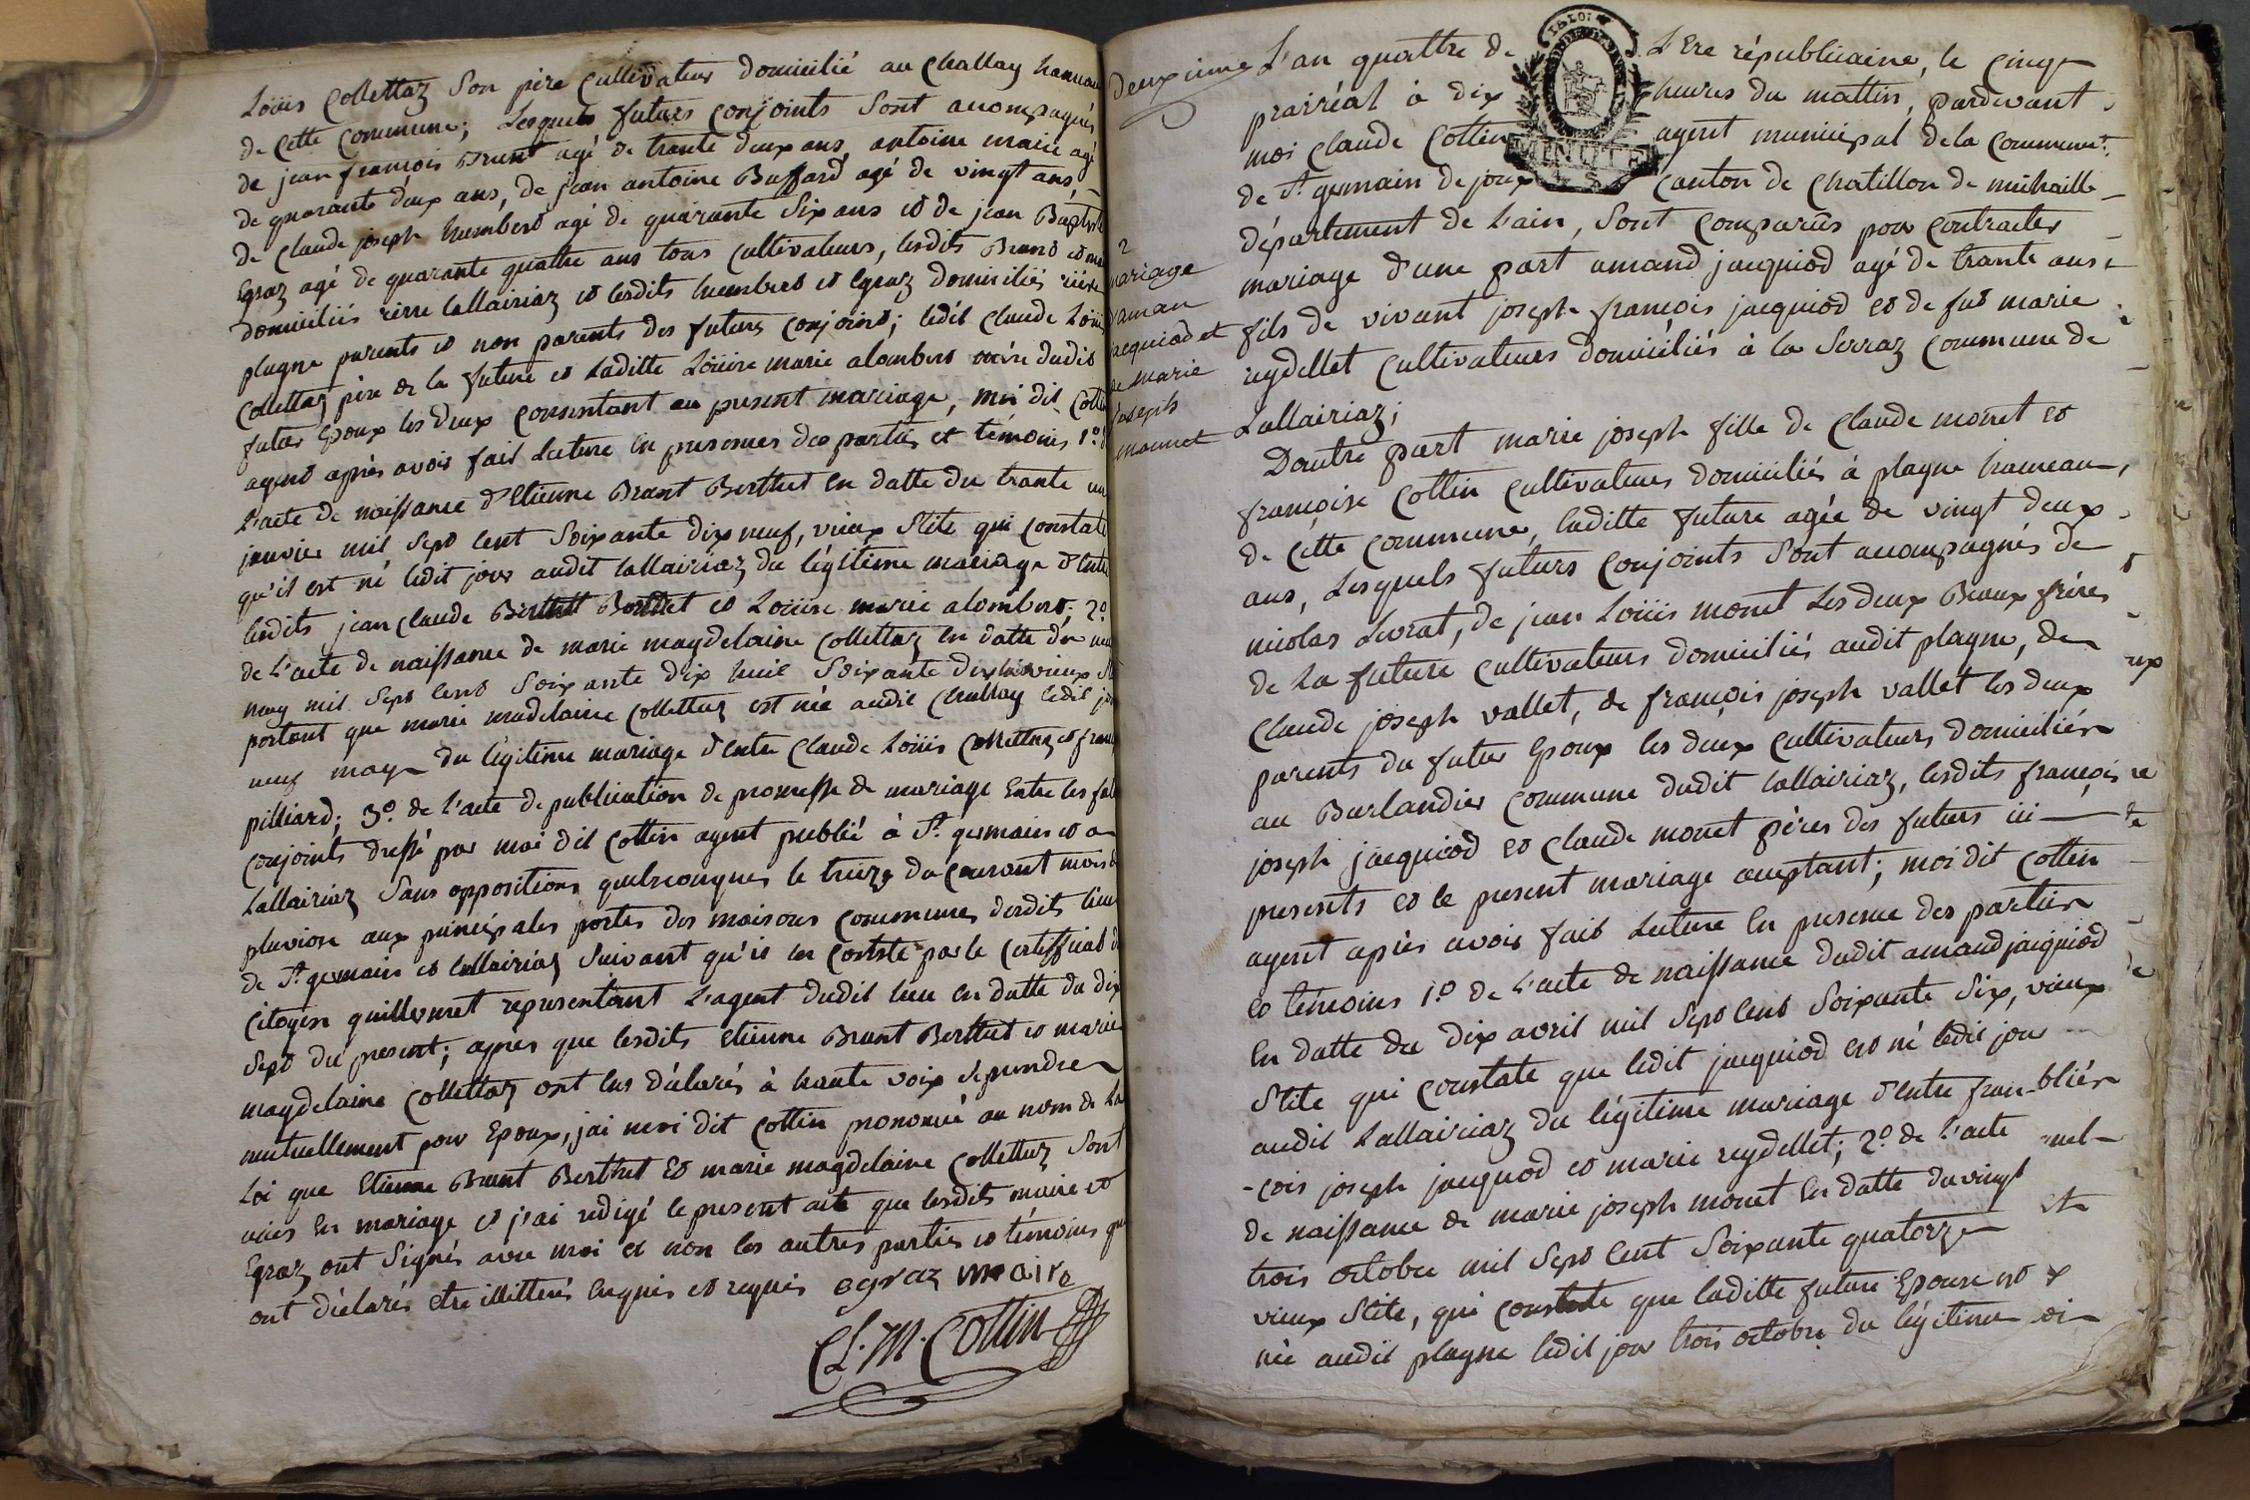 Loüis Collettaz Son pére Cultivateur domicilié au Challay hameau
de Cette Commune; Lesquels futurs Conjoints Sont acompagnés
de jean françois Brunt agé de trante deux ans, antoine maire agé
de quarante deux ans, de jean antoine Buffard agé de vingt ans,
de Claude joseph humbert agé de quarante Six ans et de jean Baptiste
Egraz agé de quarante quattre ans tous Cultivateurs, lesdits Brunt et maire
domiciliés rière lallairiaz et lesdits humbert et Egraz domiciliés rière
plagne parents et non parents des futurs Conjoins; ledit Claude Loüis
Collettaz pére de la future et Laditte Loüise marie alombert mére dudit
futur Epoux les deux Consentant au present mariage, moi dit Cottin
agent après avoir fait Lecture en presences des parties et témoins 1º. de
L'acte de naissance d'Etienne Brunt Berthet en datte du trante un
janvier mil Sept Cent Soixante dix neuf, vieux Stite qui Constate
qu'il est né ledit jour audit lallairiaz du légitime mariage d'Entre
lesdits jean Claude Berthet et Loüise marie alombert; 2º.
de L'acte de naissance de marie magdelaine Collettaz en datte du neuf
may mil Sept Cent Soixante dix huit vieux
portant que marie madelaine Collettaz est née audit Challay ledit jour
neuf may du légitime mariage d'Entre Claude Loüis Collettaz et
pilliard; 3º. de L'acte de publication de promesse de mariage Entre les futurs
Conjoints dressé par moi dit Cottin agent publié à St. germain et a
Lallairiaz Sans oppositions quelconques le treize du Courant mois de
pluviose aux principales portes des maisons Communes desdits lieux
de St. germain et lallairiaz Suivant qu'il en Conste par le Certifficat du
Citoyen guillermet representant L'agent dudit lieu en datte du dix
Sept du present; après que lesdits Etienne Brunt Berthet et marie
magdelaine Collettaz ont eus déclarés à haute voix se prendre
mutuellement pour Epoux, jai moi dit Cottin prononcé au nom de La
Loi que Etienne Brunt Berthet et marie magdelaine Collettaz Sont
unis en mariage et j'ai redigé le present acte que lesdits maire et
Egraz ont Signés avec moi et non les autres parties et témoins qui
ont déclarés etre illitterés Enquis et requis egraz maire
Cl. M. Cottin
deuxieme
2
mariage
d'aman
jacquiod et
de marie
joseph
monnet
L'an quattre de L'Ere républicaine, le Cinq
prairéal à dix heures du mattin, pardevant
moi Claude Cottin agent municipal de la Commune
de St. germain de joux Canton de Chatillon de michaille
département de L'ain, Sont Comparus pour Contracter
mariage d'une part amand jacquiod agé de trante ans
fils de vivant joseph françois jacquiod et de fut marie
reydellet Cultivateurs domiciliés à la Serraz Commune de
Lallairiaz;
Dautre part marie joseph fille de Claude monet et
françoise Cottin Cultivateurs domiciliés à plagne hameau
de Cette Commune, laditte future agée de vingt deux
ans, Lesquels futurs Conjoints Sont acompagnés de
nicolas Levrat, de jean Loüis monet Les deux Beaux fréres
de La future Cultivateurs domiciliés audit plagne, de
Claude joseph vallet, de françois joseph vallet les deux
parents du futur Epoux les deux Cultivateurs domiciliés
au Burlandier Commune dudit lallairiaz, lesdits françois
joseph jacquiod et Claude monet péres des futurs ici
presents et le present mariage aceptant; moi dit Cottin
agent après avoir fait Lecture en presence des parties
et témoins 1º. de L'acte de naissance dudit amand jacquiod
En datte du dix avril mil Sept Cent Soixante Six, vieux
Stite qui Constate que ledit jacquiod est né ledit jour
audit Lallairiaz du légitime mariage d'Entre fran
-cois joseph jacquiod et marie reydellet; 2º. de L'acte
de naissance de marie joseph monet En datte du vingt
trois octobre mil Sept Cent Soixante quatorze
vieux Stite, qui Constate que laditte future Epouse est
née audit plagne ledit jour trois octobre du légitime